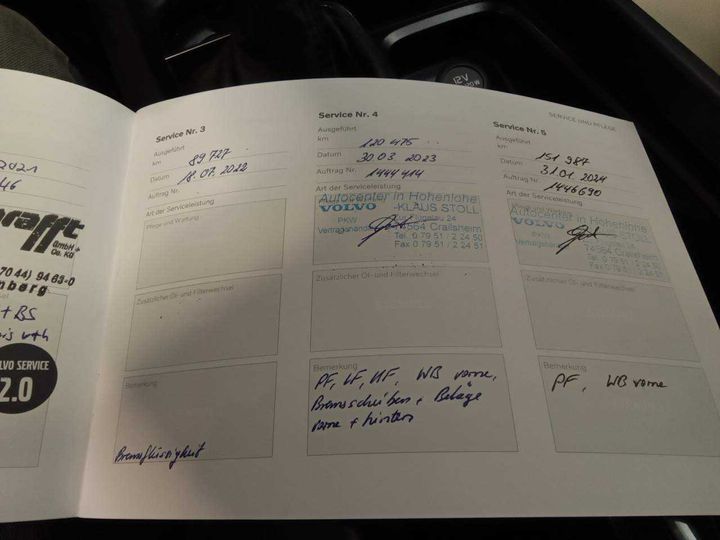 2021
46
rafft
GmbH +
Co. KG
70 44) 94 63-0
nberg
+ BS
VOLVO SERVICE
2.0
Service Nr. 3
Ausgeführt
km 89 727
Datum 18.07.2022
Auftrag Nr.
Art der Serviceleistung
Pflege und Wartung
Zusätzlicher Öl- und Filterwechsel
Bemerkung
Bremsflüssigkeit
Service Nr. 4
Ausgeführt
km 120 475
Datum 30 03 2023
Auftrag Nr. 1444 414
Art der Serviceleistung
Autocenter in Hohenlohe
VOLVO -KLAUS STOLL
PKW
Vertragshändler 74564 Crailsheim
Tel. 0 79 51 / 2 24 50
Fax 0 79 51 / 2 24 52
Zusätzlicher Öl- und Filterwechsel
Bemerkung
PF, LF, KF, WB vorne,
Bremsscheiben + Beläge
vorne + hinten
SERVICE UND PFLEGE
Service Nr. 5
Ausgeführt
km 151 987
Datum 31.01.2024
Auftrag Nr. 1446690
Art der Serviceleistung
Autocenter in Hohenlohe
VOLVO -KLAUS STOLL
PKW
74564 Crailsheim
Tel. 0 79 51 / 2 24 50
Fax 0 79 51 / 2 24 52
Zusätzlicher Öl- und Filterwechsel
Bemerkung
PF, WB vorne
12V